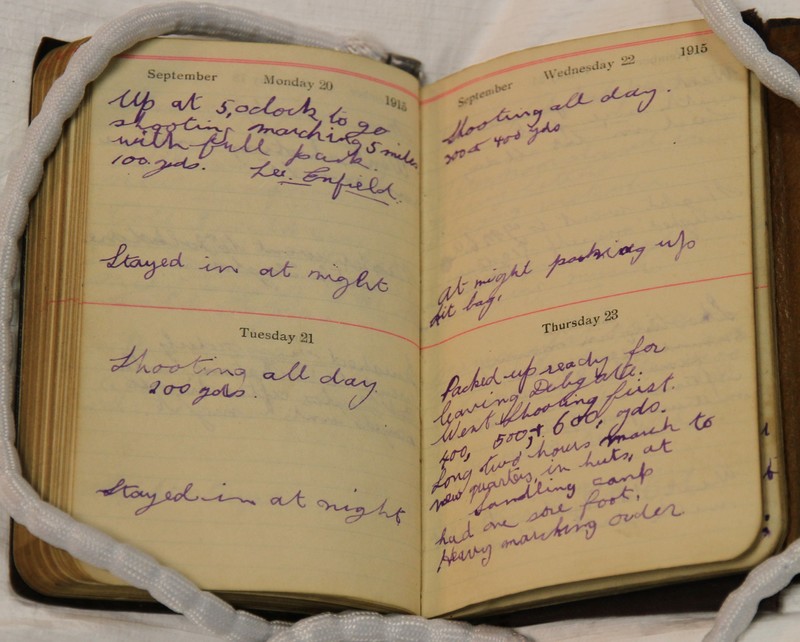 September Monday 20 1915
Up at 5,oclock to go
shooting marching 5 miles
with full pack.
100. yds. Lee. Enfield.
Stayed in at night
Tuesday 21
Shooting all day
200 yds.
Stayed in at night
September Wednesday 22 1915
Shooting all day.
300 & 400 yds
At night packing up
kit bag.
Thursday 23
Packed up ready for
leaving Dibgate.
Went shooting first.
400, 500, & 600, yds.
Long two hours march to
new quarters, in huts, at
Sandling camp
had one sore foot.
Heavy marching order